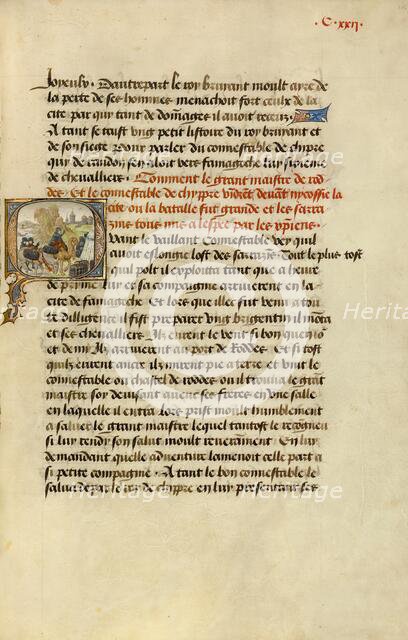 · C · xxij ·
Joyeulx · Dautre part le roy bruyant moult ayre de
la perte de ses hommes menachoit fort ceulx de la
cite par qui tant de dommages il avoit receuz ·
A tant se taist ung petit listoire du roy bruyant et
de son siege pour parler du connestable de chipre
qui de randon sen aloit vers famagoche luy sixieme
de chevalliers · Comment le grant maistre de rod
des · Et le connestable de chyppre vindrent devant nycossie la
cite ou la bataille fut grande et les sarra
zins tous mis a lespee par les xpiens ·
Quant le vaillant Connestable vey quil
avoit eslongie lost des sarazins Tout le plus tost
quil polt il exploitta tant qua heure
de prime luy et sa compagnie arriverent en la
cite de famagoche Et lors que illec fut venu a tou
te dilligence il fist preparer ung brigentin il monta
et ses chevalliers Ilz eurent le vent si bon quen jo
et demi Ilz arriverent au port de Roddes Et si tost
quilz eurent ancre ilz mirent pie a terre et vint le
connestable ou chastel de roddes ou il trouva le grant
maistre soy devisant avec ses freres en une salle
en laquelle il entra Lors prist moult humblement
a saluer le grant maistre lequel tantost le recogneu
si luy rendy son salut moult reveramment En luy
demandant quelle adventure lamenoit celle part a
si petite compagnie · A tant le bon connestable le
salua de par le roy de chyppre en luy presentant ses
Heritage
Heritage
Heritage
Heritage